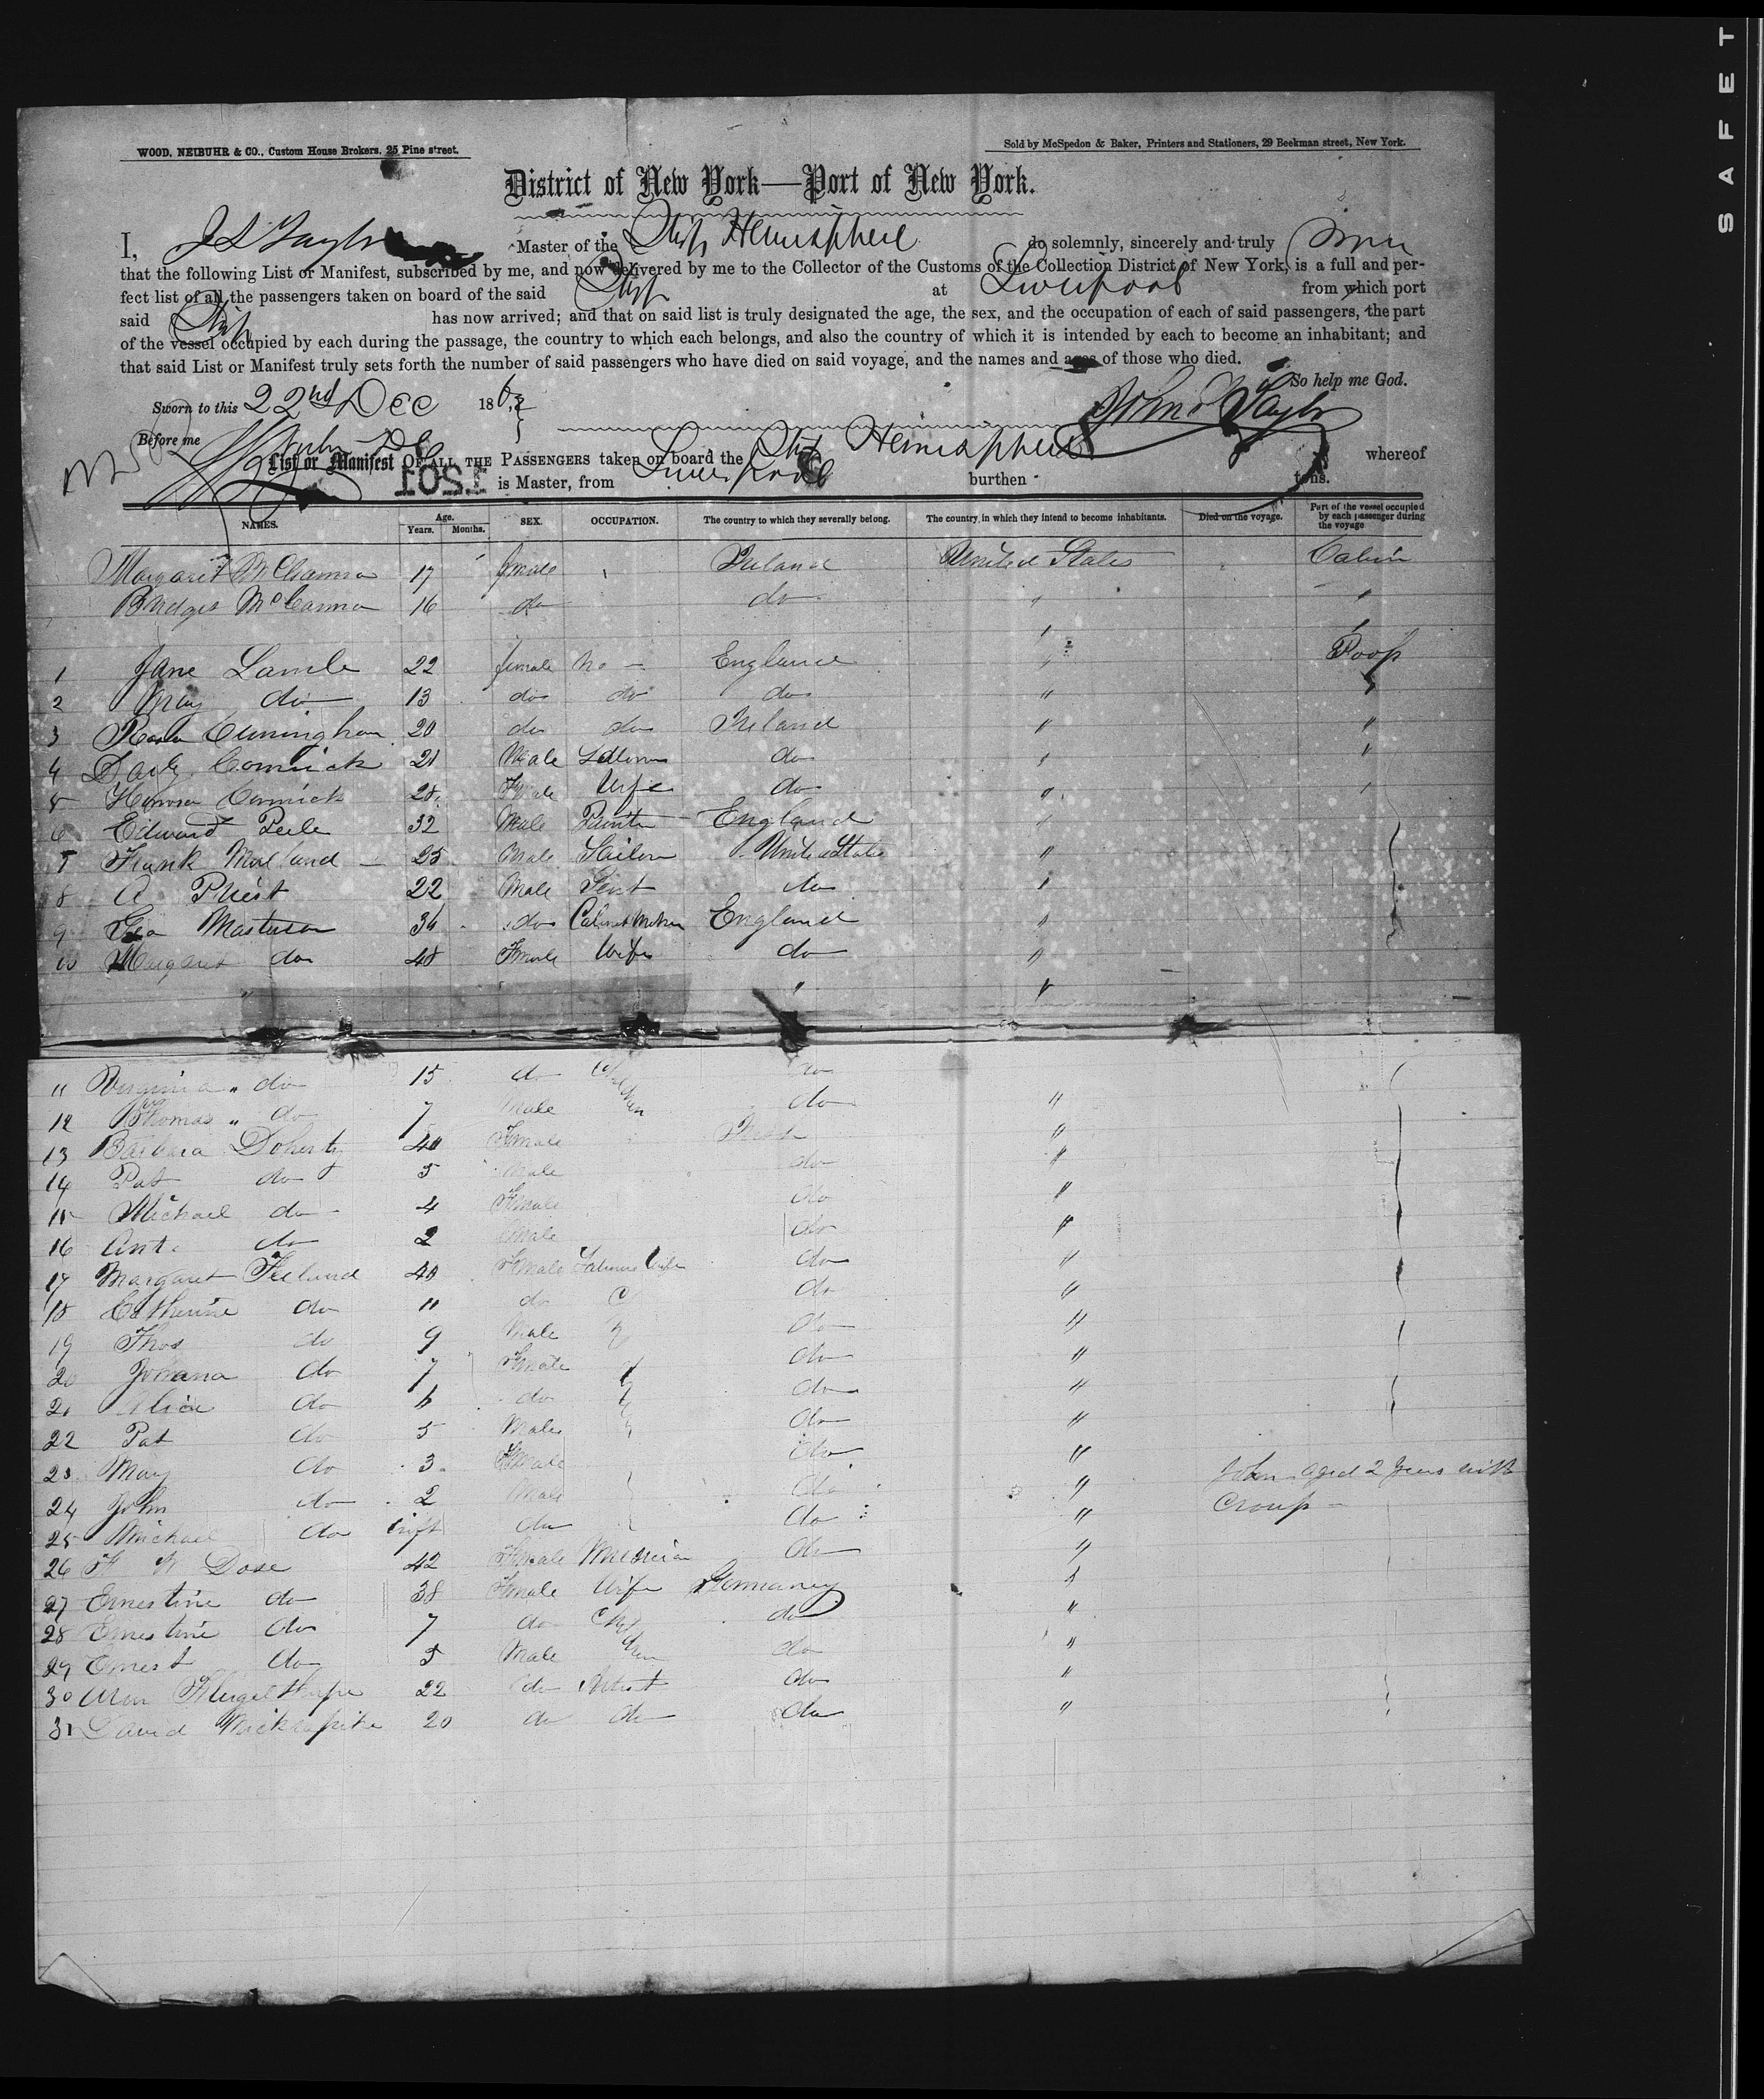 SAFET
WOOD, NEIBUHR & CO., Custom House Brokers, 25 Pine street.
Sold by McSpedon & Baker, Printers and Stationers, 29 Beekman street, New York.
District of New York—Port of New York.
I, J L Taylor Master of the Ship Hemisphere do solemnly, sincerely and truly
that the following List or Manifest, subscribed by me, and now delivered by me to the Collector of the Customs of the Collection District of New York, is a full and per-
fect list of all the passengers taken on board of the said Ship at Liverpool from which port
said Ship has now arrived; and that on said list is truly designated the age, the sex, and the occupation of each of said passengers, the part
of the vessel occupied by each during the passage, the country to which each belongs, and also the country of which it is intended by each to become an inhabitant; and
that said List or Manifest truly sets forth the number of said passengers who have died on said voyage, and the names and ages of those who died.
So help me God.
Sworn to this 22nd Dec 186
Before me
List or Manifest OF ALL THE PASSENGERS taken on board the Ship Hemisphere whereof
is Master, from Liverpool burthen tons.
1201
NAMES. Age. Years. Months. SEX. OCCUPATION. The country to which they severally belong. The country in which they intend to become inhabitants. Died on the voyage. Part of the vessel occupied by each passenger during the voyage
Margaret 17 female Ireland United States Cabin
Bridget McCanna 16 do do "
1 Jane Lamb 22 female no England " Poop
2 May do 13 do do do " "
3 Rosa Cunningham 20 do do Ireland " "
4 Cormick 21 Male do " "
5 Cormick 28 Female Wife do " "
6 Edward Peele 32 Male Painter England "
7 Frank 25 Male Sailor United States "
8 A Priest 22 Male Gent do "
9 Geo Masterson 36 do Cabinet Maker England "
10 Margaret do 48 Female Wife do "
" " "
11 Virginia " do 15 do Children do
12 Thomas " do 7 Male do "
13 Barbara Doherty 40 Female "
14 Pat do 5 Male do "
15 Michael do 4 Female do "
16 Ant. do 2 Male do "
17 Margaret Ireland 40 Female Wife do "
18 Catherine do 11 do C do "
19 Thos do 9 Male do "
20 Johanna do 7 Female do "
21 Alice do 6 do do "
22 Pat do 5 Male do "
23 May do 3 Female do "
24 John do 2 Male do " John aged 2 years with
25 Michael do inft do do " Croup
26 Dose 42 Female Musician do "
27 Ernestine do 38 Female Wife Germaney "
28 Ernestine do 7 do Children do "
29 Ernest do 5 Male do "
30 22 do Artist do "
31 David 20 do do do "